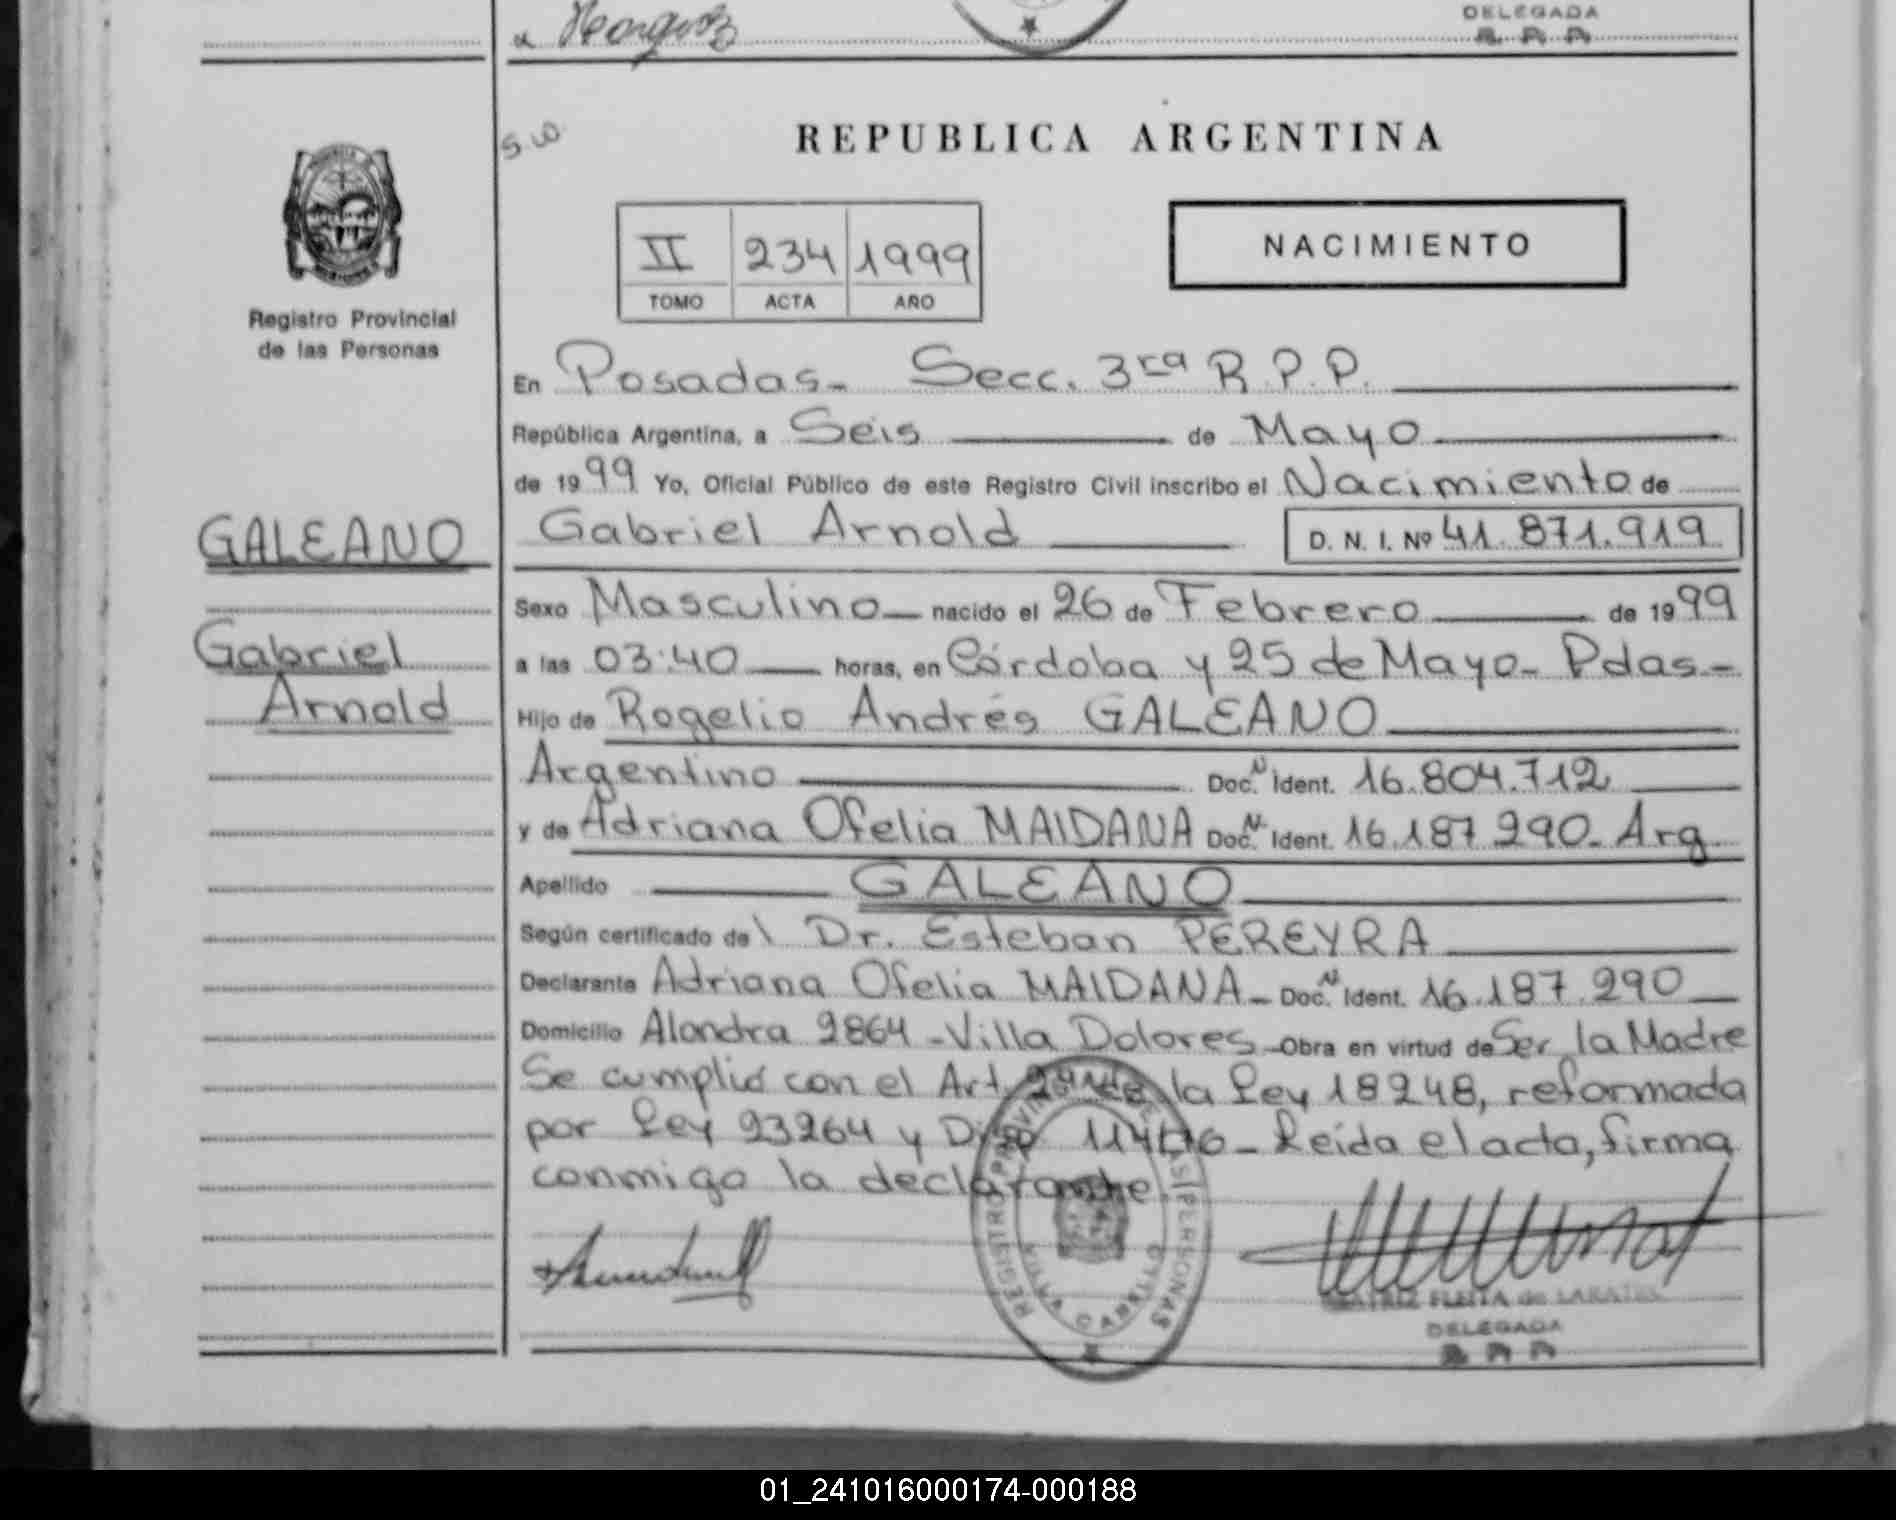 DELEGADA
R. P. P.
S.W.
REPUBLICA ARGENTINA
Registro Provincial
de las Personas
II 234 1999
TOMO ACTA AÑO
NACIMIENTO
En Posadas- Secc. 3ra R.P.P.
República Argentina, a Seis de Mayo
de 1999 Yo, Oficial Público de este Registro Civil inscribo el Nacimiento de
GALEANO
Gabriel Arnold D. N. I. Nº 41.871.919
Sexo Masculino nacido el 26 de Febrero de 1999
Gabriel
a las 03:40 horas, en Córdoba y 25 de Mayo- Pdas-
Arnold
Hijo de Rogelio Andrés GALEANO
Argentino Doc. N Ident. 16.804.712
y de Adriana Ofelia MAIDANA Doc. N Ident. 16.187.290- Arg
Apellido GALEANO
Según certificado del Dr. Esteban PEREYRA
Declarante Adriana Ofelia MAIDANA- Doc. N Ident. 16.187.290
Domicilio Alondra 2864 -Villa Dolores- Obra en virtud de Ser la Madre
Se cumplió con el Art. de la Ley 18248, reformada
por Ley 23264 y Disp - Leída el acta, firma
conmigo la declarante.
REGISTRO PROVINCIAL DE LAS PERSONAS
VILLA CABELLO
BEATRIZ FLEITA de
DELEGADA
R P P
01_241016000174-000188